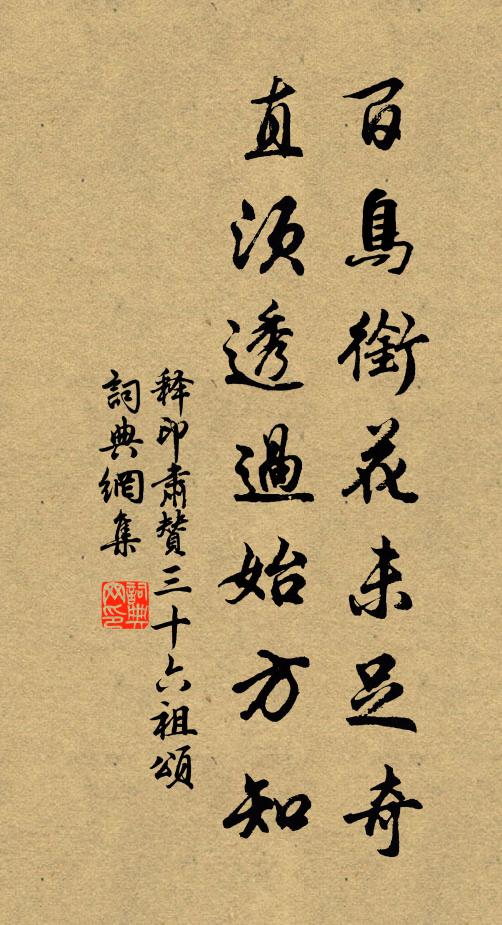 百鳥銜花未足奇
直須透過始方知
释印肅贊三十六祖頌
詞典網集
詞典网印